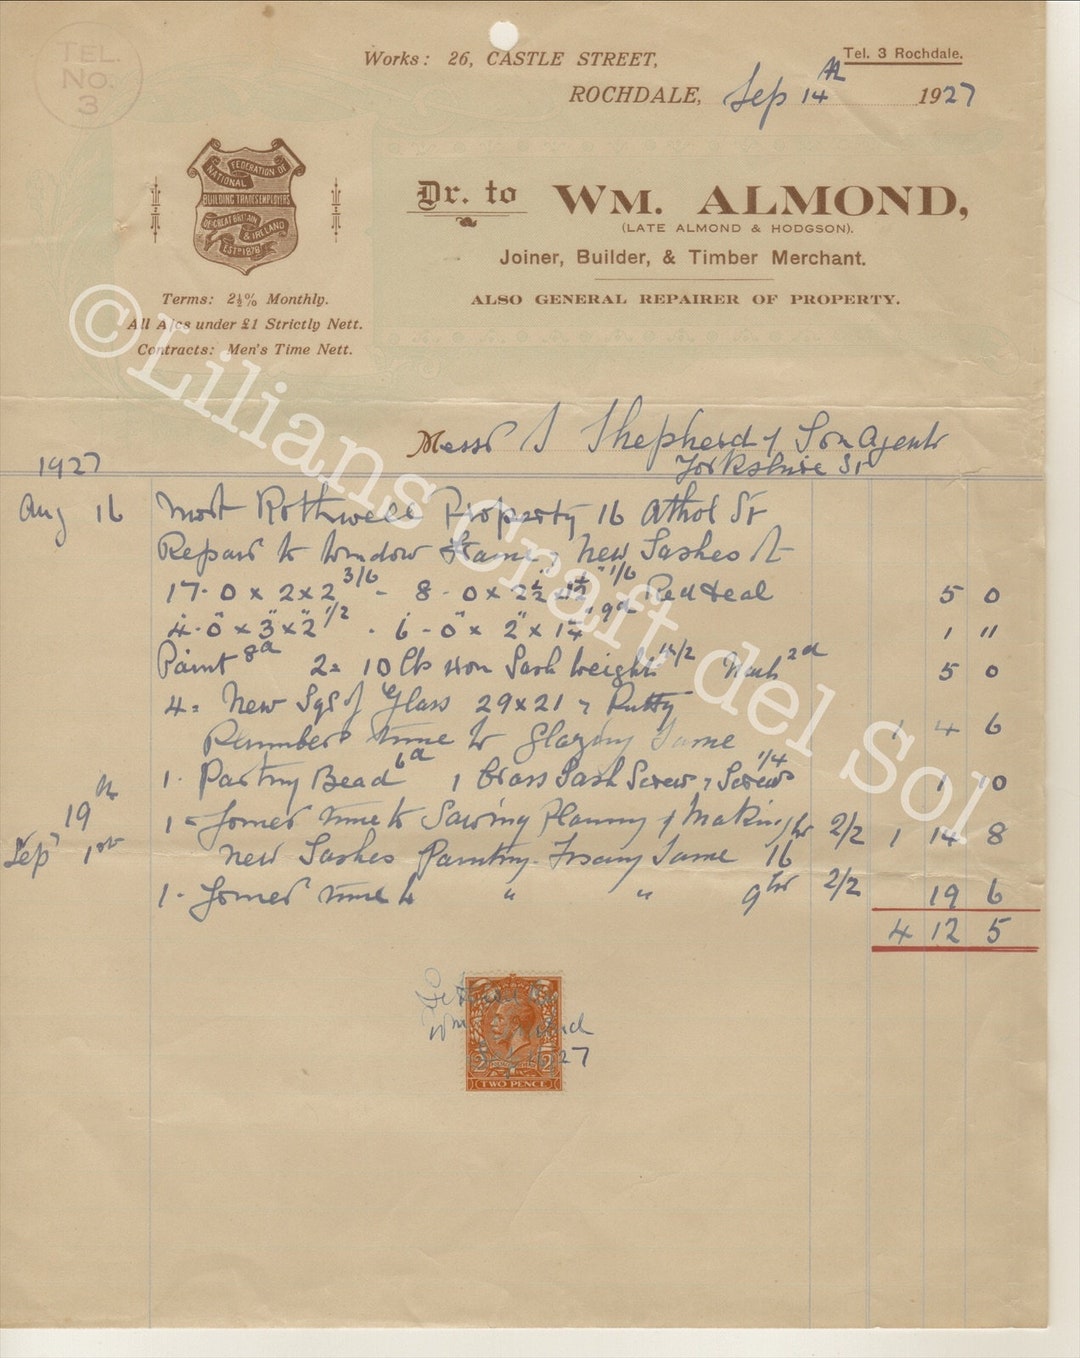 TEL.
No.
3
Works: 26, CASTLE STREET,
Tel. 3 Rochdale.
ROCHDALE, Sep 14th 1927
NATIONAL FEDERATION OF
BUILDING TRADES EMPLOYERS
OF GREAT BRITAIN
& IRELAND
ESTD 1878
Dr. to WM. ALMOND,
(LATE ALMOND & HODGSON).
Joiner, Builder, & Timber Merchant.
ALSO GENERAL REPAIRER OF PROPERTY.
Terms: 2½% Monthly.
All A/cs under £1 Strictly Nett.
Contracts: Men's Time Nett.
©Lilians Craft del Sol
Messrs S Shepherd & Son Agents
Yorkshire St
1927
Aug 16 Rothwell Property 16 Athol St
Repairs to Window Frame & New Sashes
17-0 x 2 x 2 3/6 - 8-0 x 2½ x 1½ 1/6 Red deal 5 0
4-0" x 3" x 2" 1/2 - 6-0" x 2" x 1¼" 9d 1 11
Paint 8d 2= 10 lb iron Sash Weights 2d 5 0
4= New Sqs of Glass 29x21 & Putty
Plumbers time to Glazing Same 1 4 6
1- Parting Bead 6d 1 Brass Sash Screw & Screws 1/4 1 10
19th 1= Joiners time to Sawing Planing & Making hr 2/2 1 14 8
Sept 1st new Sashes Painting Fixing Same 16
1- Joiners time to " " 9hr 2/2 19 6
4 12 5
Wm Almond
27
2 2
TWO PENCE